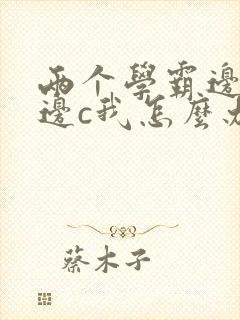 两个學霸邊
邊c我怎麼
蔡木子